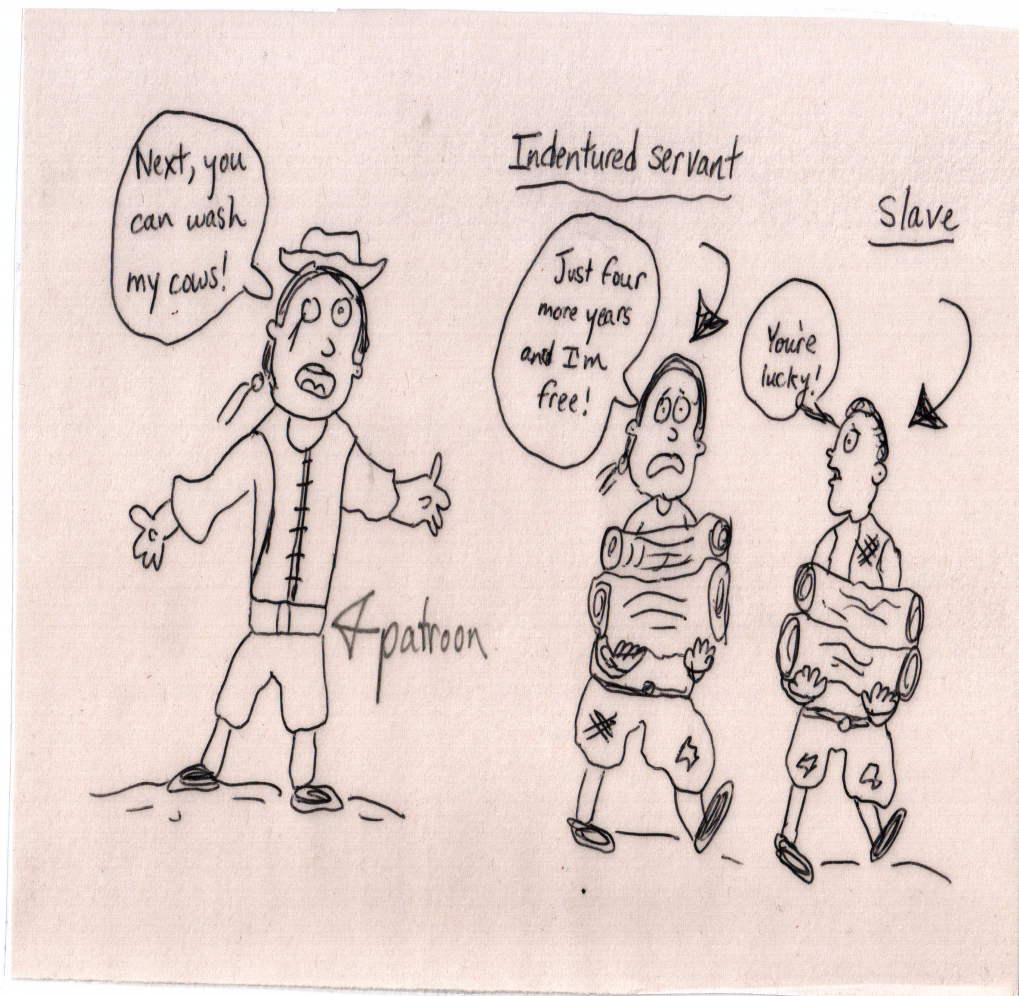 Next, you
can wash
my cows!
patroon
Indentured servant
Just four
more years
and I'm
free!
Slave
You're
lucky!